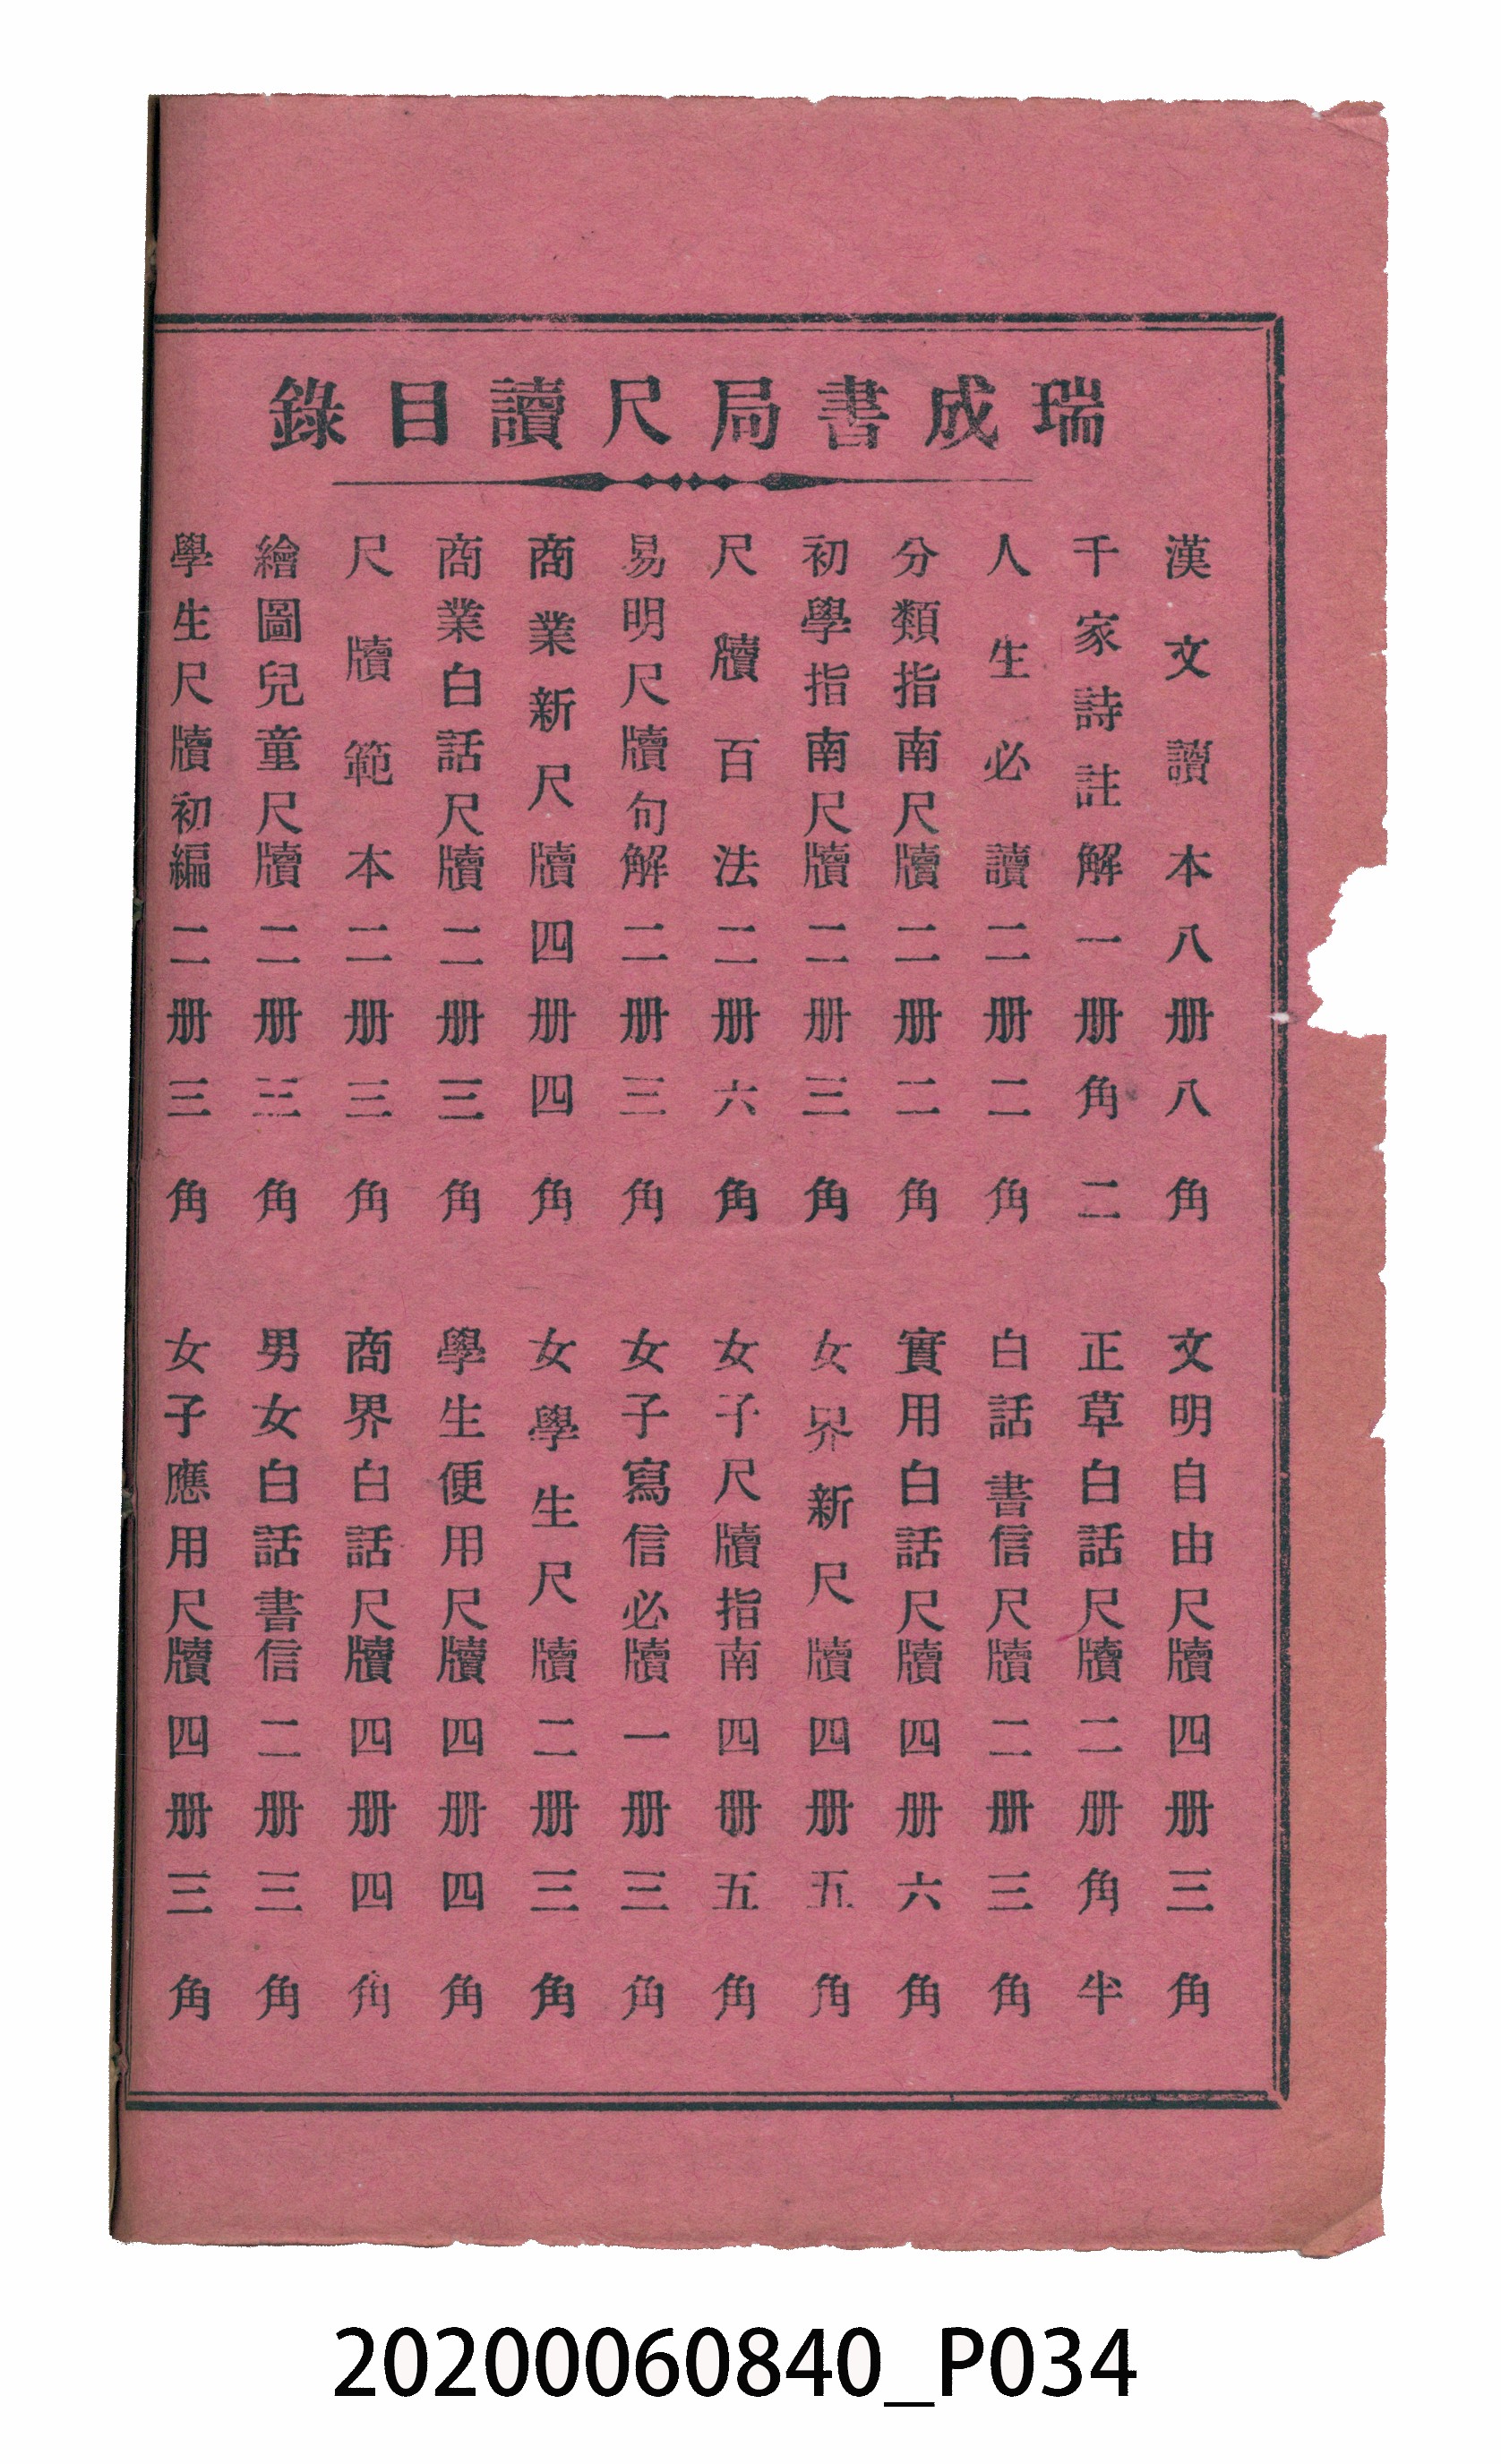 瑞成書局尺讀目錄
漢文讀本八册八角
千家詩註解一册角二
人生必讀二册二角
分類指南尺牘二册二角
初學指南尺牘二册三角
尺牘百法二册六角
易明尺牘句解二册三角
商業新尺牘四册四角
商業白話尺牘二册三角
尺牘範本二册三角
繪圖兒童尺牘二册三角
學生尺牘初編二册三角
文明自由尺牘四册三角
正草白話尺牘二册角半
白話書信尺牘二册三角
實用白話尺牘四册六角
女界新尺牘四册五角
女子尺牘指南四册五角
女子寫信必牘一册三角
女學生尺牘二册三角
學生便用尺牘四册四角
商界白話尺牘四册四角
男女白話書信二册三角
女子應用尺牘四册三角
20200060840_P034